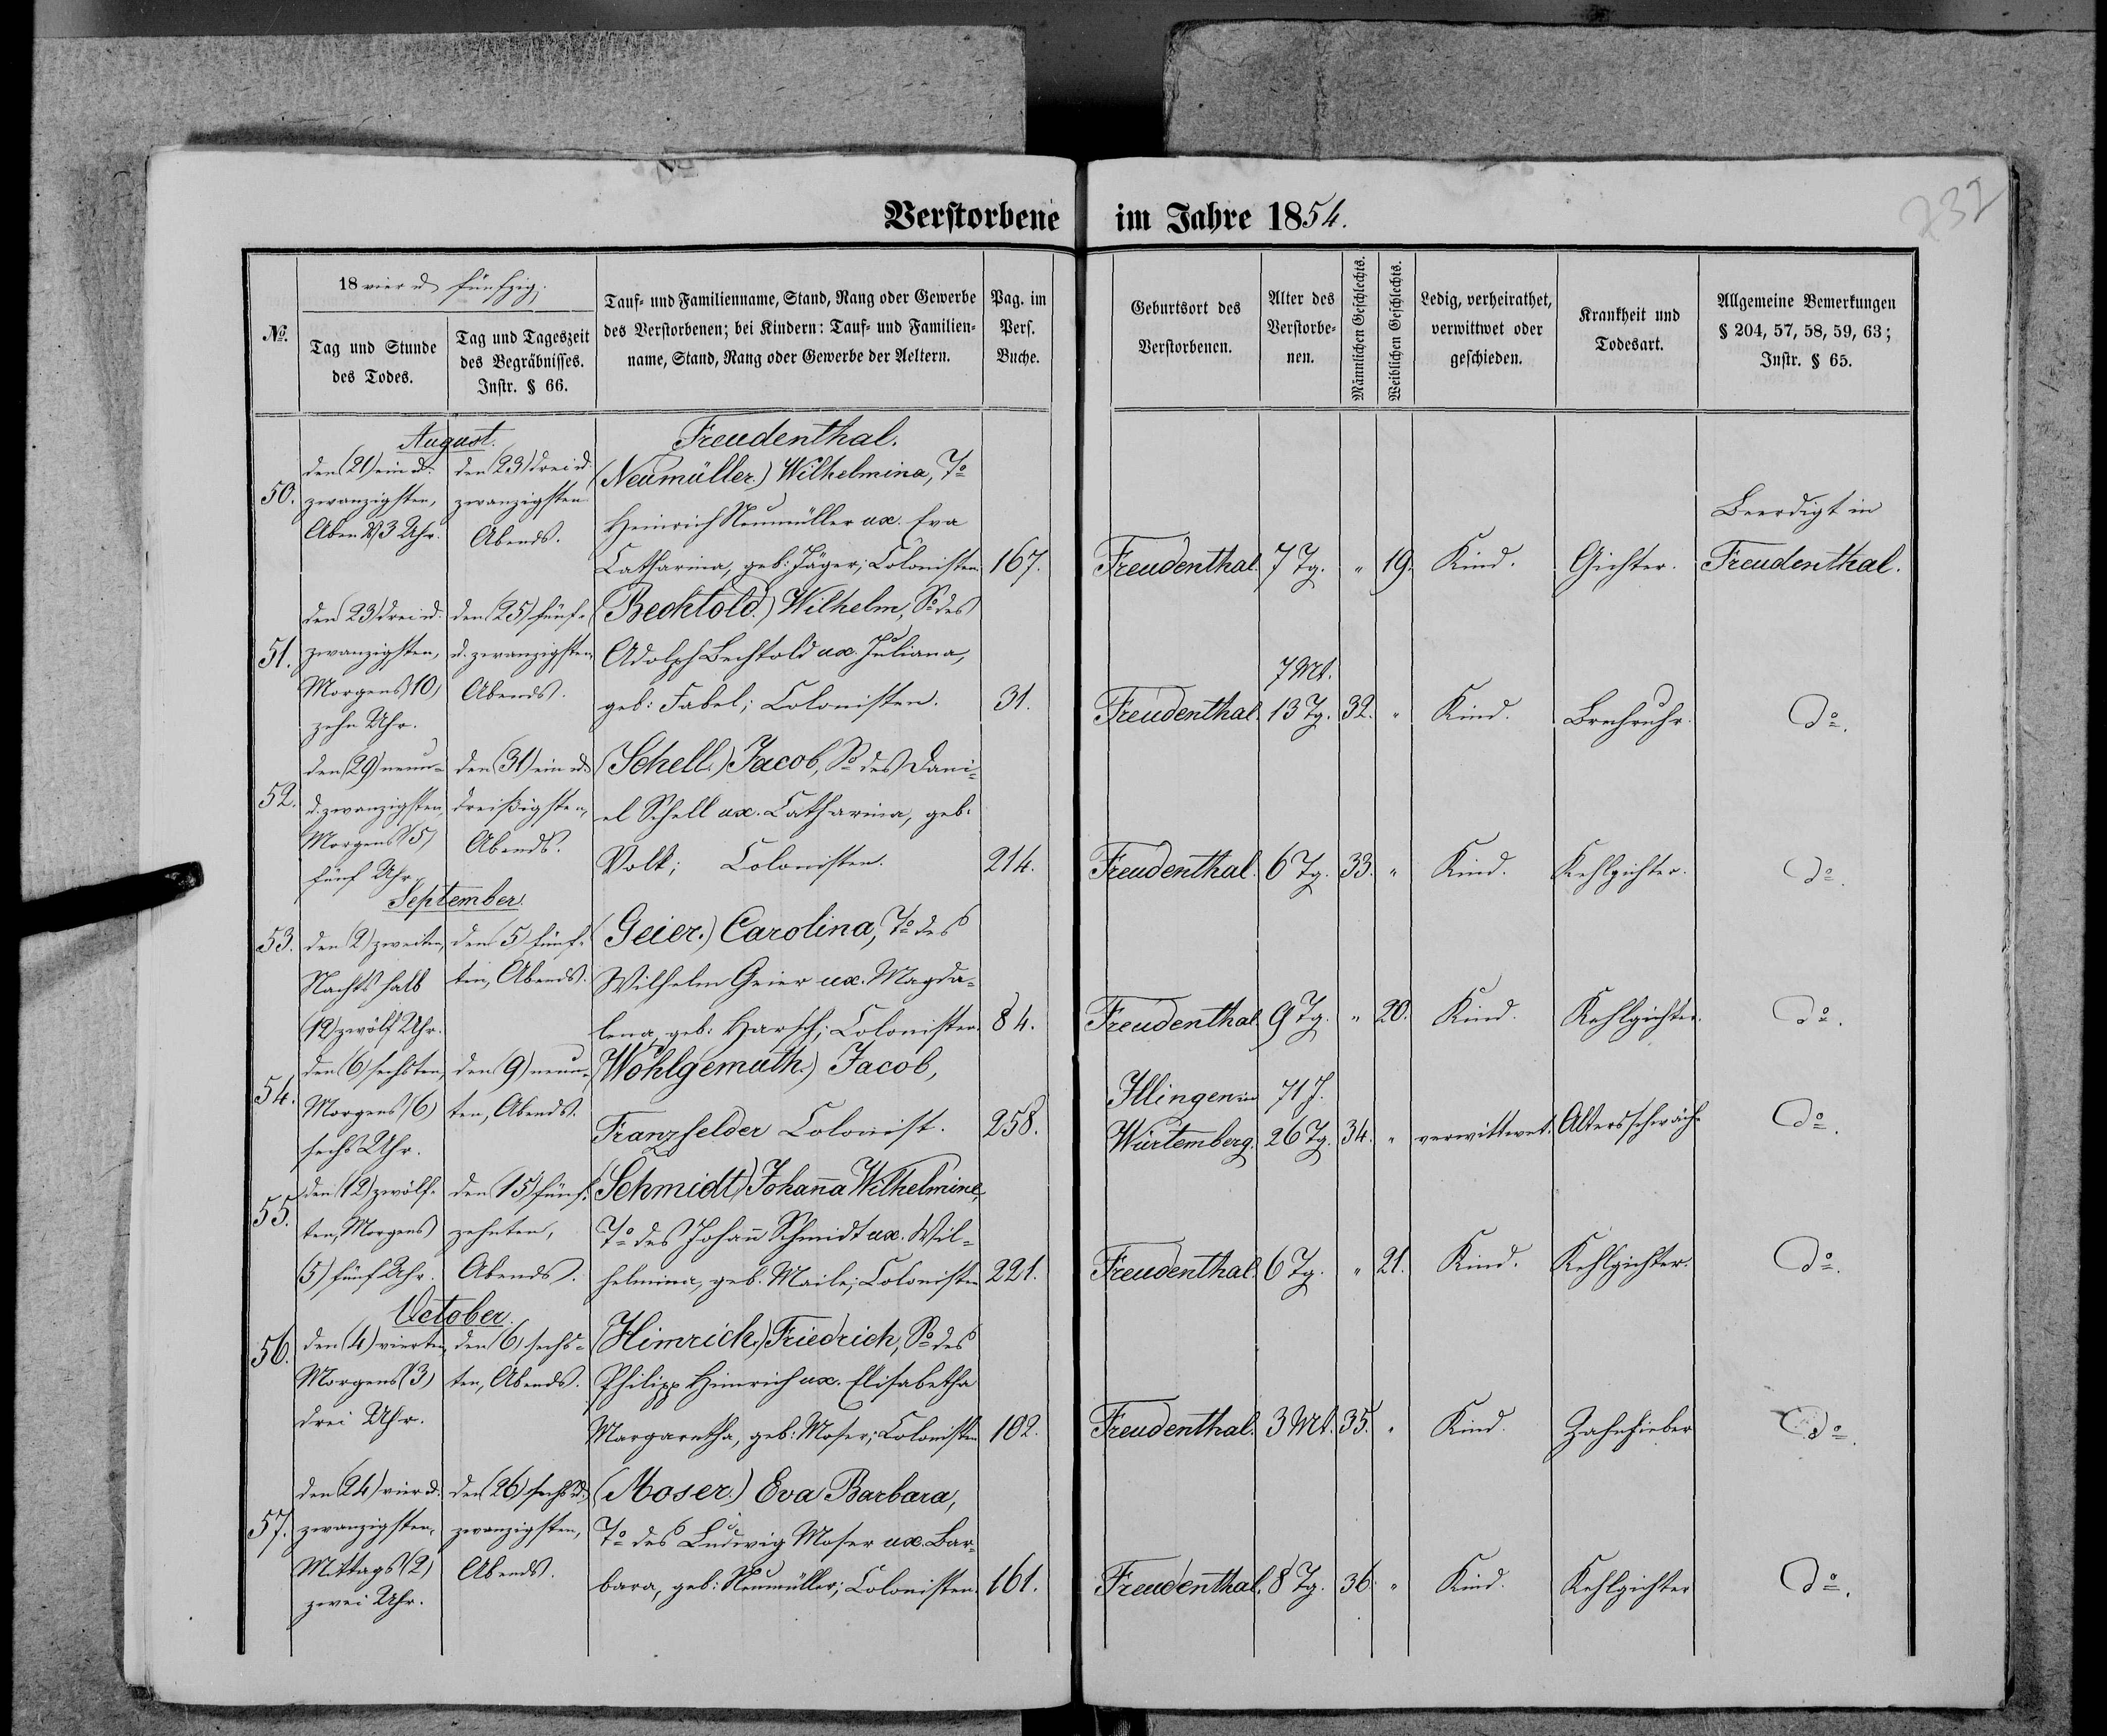 732
Verstorbene im Jahre 1854.
№.
18 vier u. fünfzig.
Tag und Stunde
des Todes.
Tag und Tageszeit
des Begräbnisses.
Instr. § 66.
Tauf- und Familienname, Stand, Rang oder Gewerbe
des Verstorbenen; bei Kindern: Tauf- und Familien-
name, Stand, Rang oder Gewerbe der Aeltern.
Pag. im
Pers.
Buche.
Geburtsort des
Verstorbenen.
Alter des
Verstorbe-
nen.
Männlichen Geschlechts.
Weiblichen Geschlechts.
Ledig, verheirathet,
verwittwet oder
geschieden.
Krankheit und
Todesart.
Allgemeine Bemerkungen
§ 204, 57, 58, 59, 63;
Instr. § 65.
August.
Freudenthal.
50.
den (21) ein u.
zwanzigsten,
3 Uhr.
den (23) drei u.
zwanzigsten
Abends.
(Neumüller.) Wilhelmina, To
Heinrich Neumüller ux. Eva
Catharina, geb: Jäger; Colonisten
167.
Freudenthal.
7 Tg.
"
19.
Kind.
Gichter.
Beerdigt in
Freudenthal.
51.
den 23) drei u.
zwanzigsten,
Morgens (10)
zehn Uhr.
den (25) fünf-
u. zwanzigsten
Abends.
(Bechtold.) Wilhelm, So des
Adolph Bechtold ux. Juliana,
geb: Fabel; Colonisten.
31.
Freudenthal.
7 Mt.
13 Tg.
32.
"
Kind.
Brechruhr.
do.
52.
den (29) neun-
u. zwanzigsten,
Morgens (5)
fünf Uhr.
den (31) ein u.
dreißigsten,
Abends.
(Schell.) Jacob, So des Dani-
el Schell ux. Catharina, geb:
Volk; Colonisten.
214.
Freudenthal.
6 Tg.
33.
"
Kind.
Kehlgichter.
do.
September.
53.
den (2) zweiten,
Nachts halb
(12) zwölf Uhr.
den 5) fünf-
ten, Abends.
(Geier.) Carolina, To des
Wilhelm Geier ux. Magda-
lena, geb: Harsch; Colonisten
84.
Freudenthal.
9 Tg.
"
20.
Kind.
Kehlgichter.
do.
54.
den (6) sechsten,
Morgens (6)
sechs Uhr.
den 9) neun-
ten, Abends.
(Wohlgemuth.) Jacob,
Franzfelder Colonist.
258.
Illingen in
Würtemberg.
71 J.
26 Tg.
34.
"
verwittwet.
Altersschwäche
do.
55.
den (12) zwölf-
ten, Morgens
(5) fünf Uhr.
den (15) fünf-
zehnten,
Abends.
(Schmidt) Johanna Wilhelmine,
To des Johann Schmidt ux. Wil-
helmina, geb. Maile; Colonisten
221.
Freudenthal.
6 Tg.
"
21.
Kind.
Kehlgichter.
do.
October.
56.
den (4) vierten
Morgens (3)
drei Uhr.
den (6) sechs-
ten, Abends.
(Himrich.) Friedrich, So des
Philipp Himrich ux. Elisabetha
Margaretha, geb: Moser; Colonisten
102.
Freudenthal.
3 Mt.
35.
"
Kind.
Zahnfieber
do.
57.
den (24) vier u.
zwanzigsten,
Mittags (2)
zwei Uhr.
den (26) sechs u.
zwanzigsten,
Abends.
(Moser.) Eva Barbara,
To des Ludwig Moser ux. Bar-
bara, geb: Neumüller; Colonisten.
161.
Freudenthal.
8 Tg.
36.
"
Kind.
Kehlgichter
do.